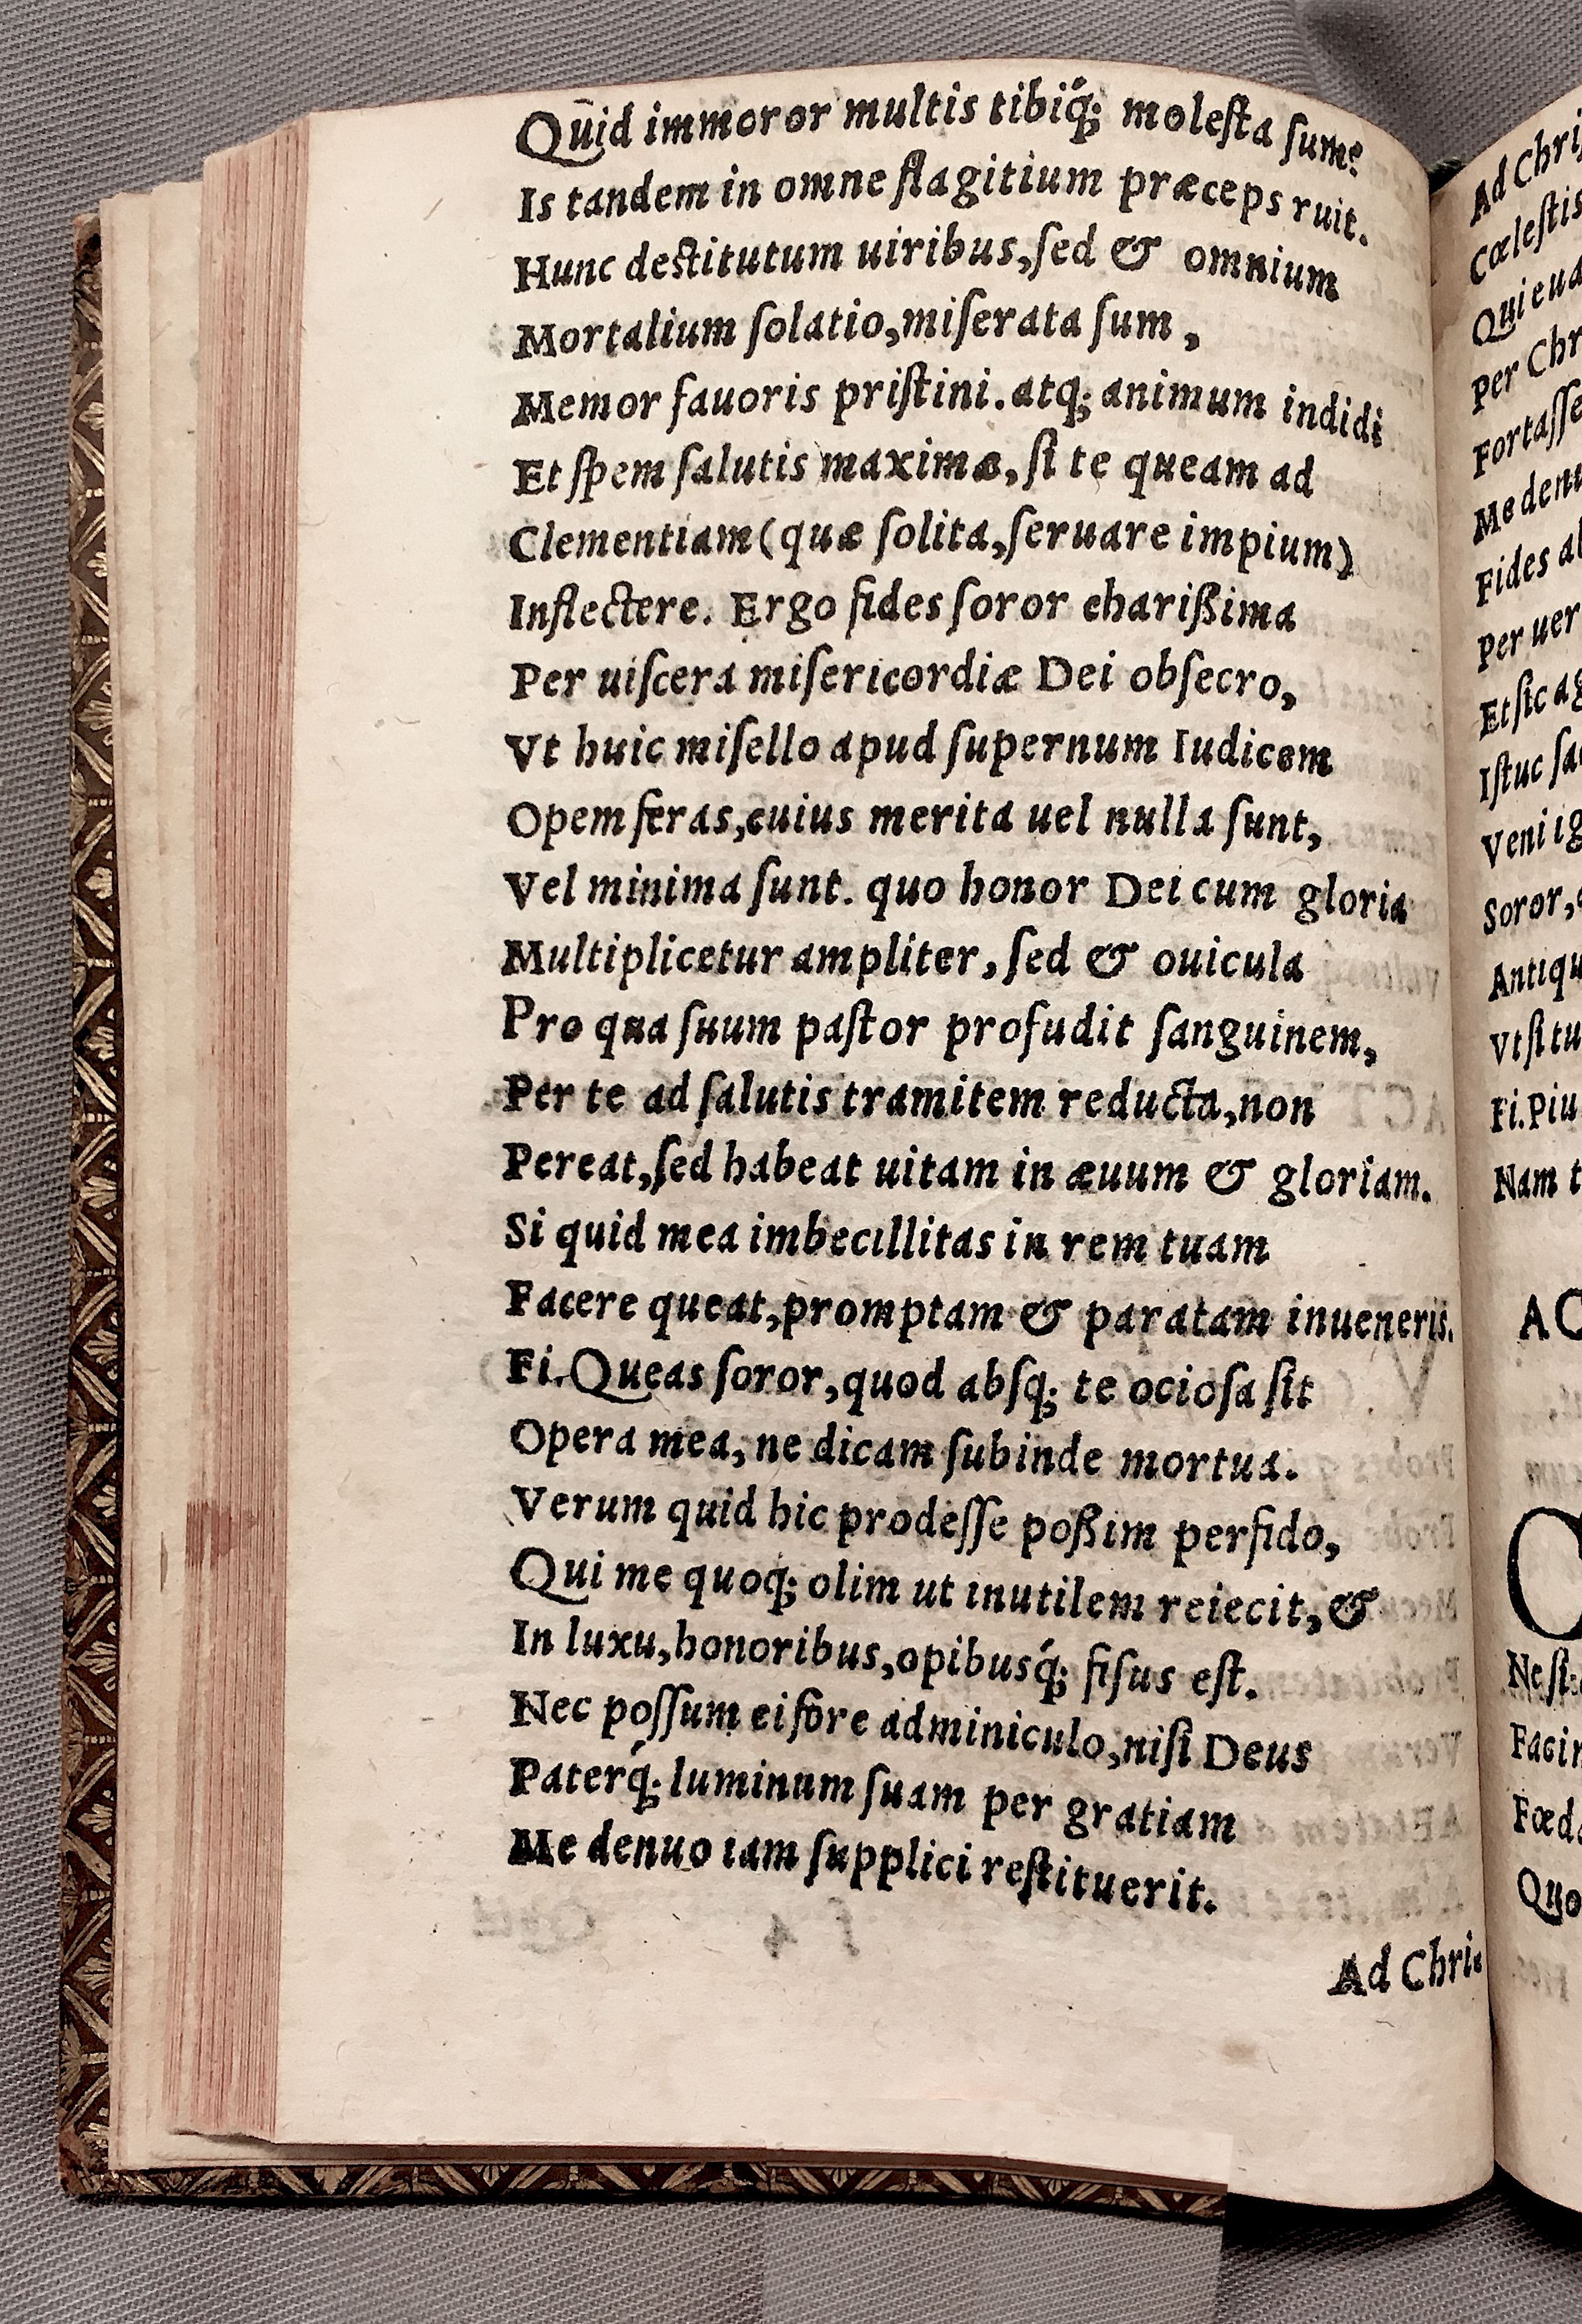 Quid immoror multis tibiq́; molesta sum?
Is tandem in omne flagitium præceps ruit.
Hunc destitutum uiribus, sed & omnium
Mortalium solatio, miserata sum,
Memor fauoris pristini. atq; animum indidi
Et spem salutis maximæ, si te queam ad
Clementiam (quæ solita, seruare impium)
Inflectere. Ergo fides soror charißima
Per uiscera misericordiæ Dei obsecro,
Vt huic misello apud supernum Iudicem
Opem feras, cuius merita uel nulla sunt,
Vel minima sunt. quo honor Dei cum gloria
Multiplicetur ampliter, sed & ouicula
Pro qua suum pastor profudit sanguinem,
Per te ad salutis tramitem reducta, non
Pereat, sed habeat uitam in æuum & gloriam.
Si quid mea imbecillitas in rem tuam
Facere queat, promptam & paratam inueneris.
Fi. Queas soror, quod absq; te ociosa sit
Opera mea, ne dicam subinde mortua.
Verum quid hic prodesse poßim perfido,
Qui me quoq; olim ut inutilem reiecit, &
In luxu, honoribus, opibusq́; fisus est.
Nec possum ei fore adminiculo, nisi Deus
Paterq́; luminum suam per gratiam
Me denuo iam supplici restituerit.
Ad Chri-
Ad Chri
Cœlestis
Qui eua
Per Chr
Fortasse
Me denu
Fides al
Per uer
Et sic ag
Istuc sa
Veni ig
Soror,
Antiqu
Vt si tu
Fi. Piu
Nam t
AC
C
Ne si
Facin
Fœda
Quo